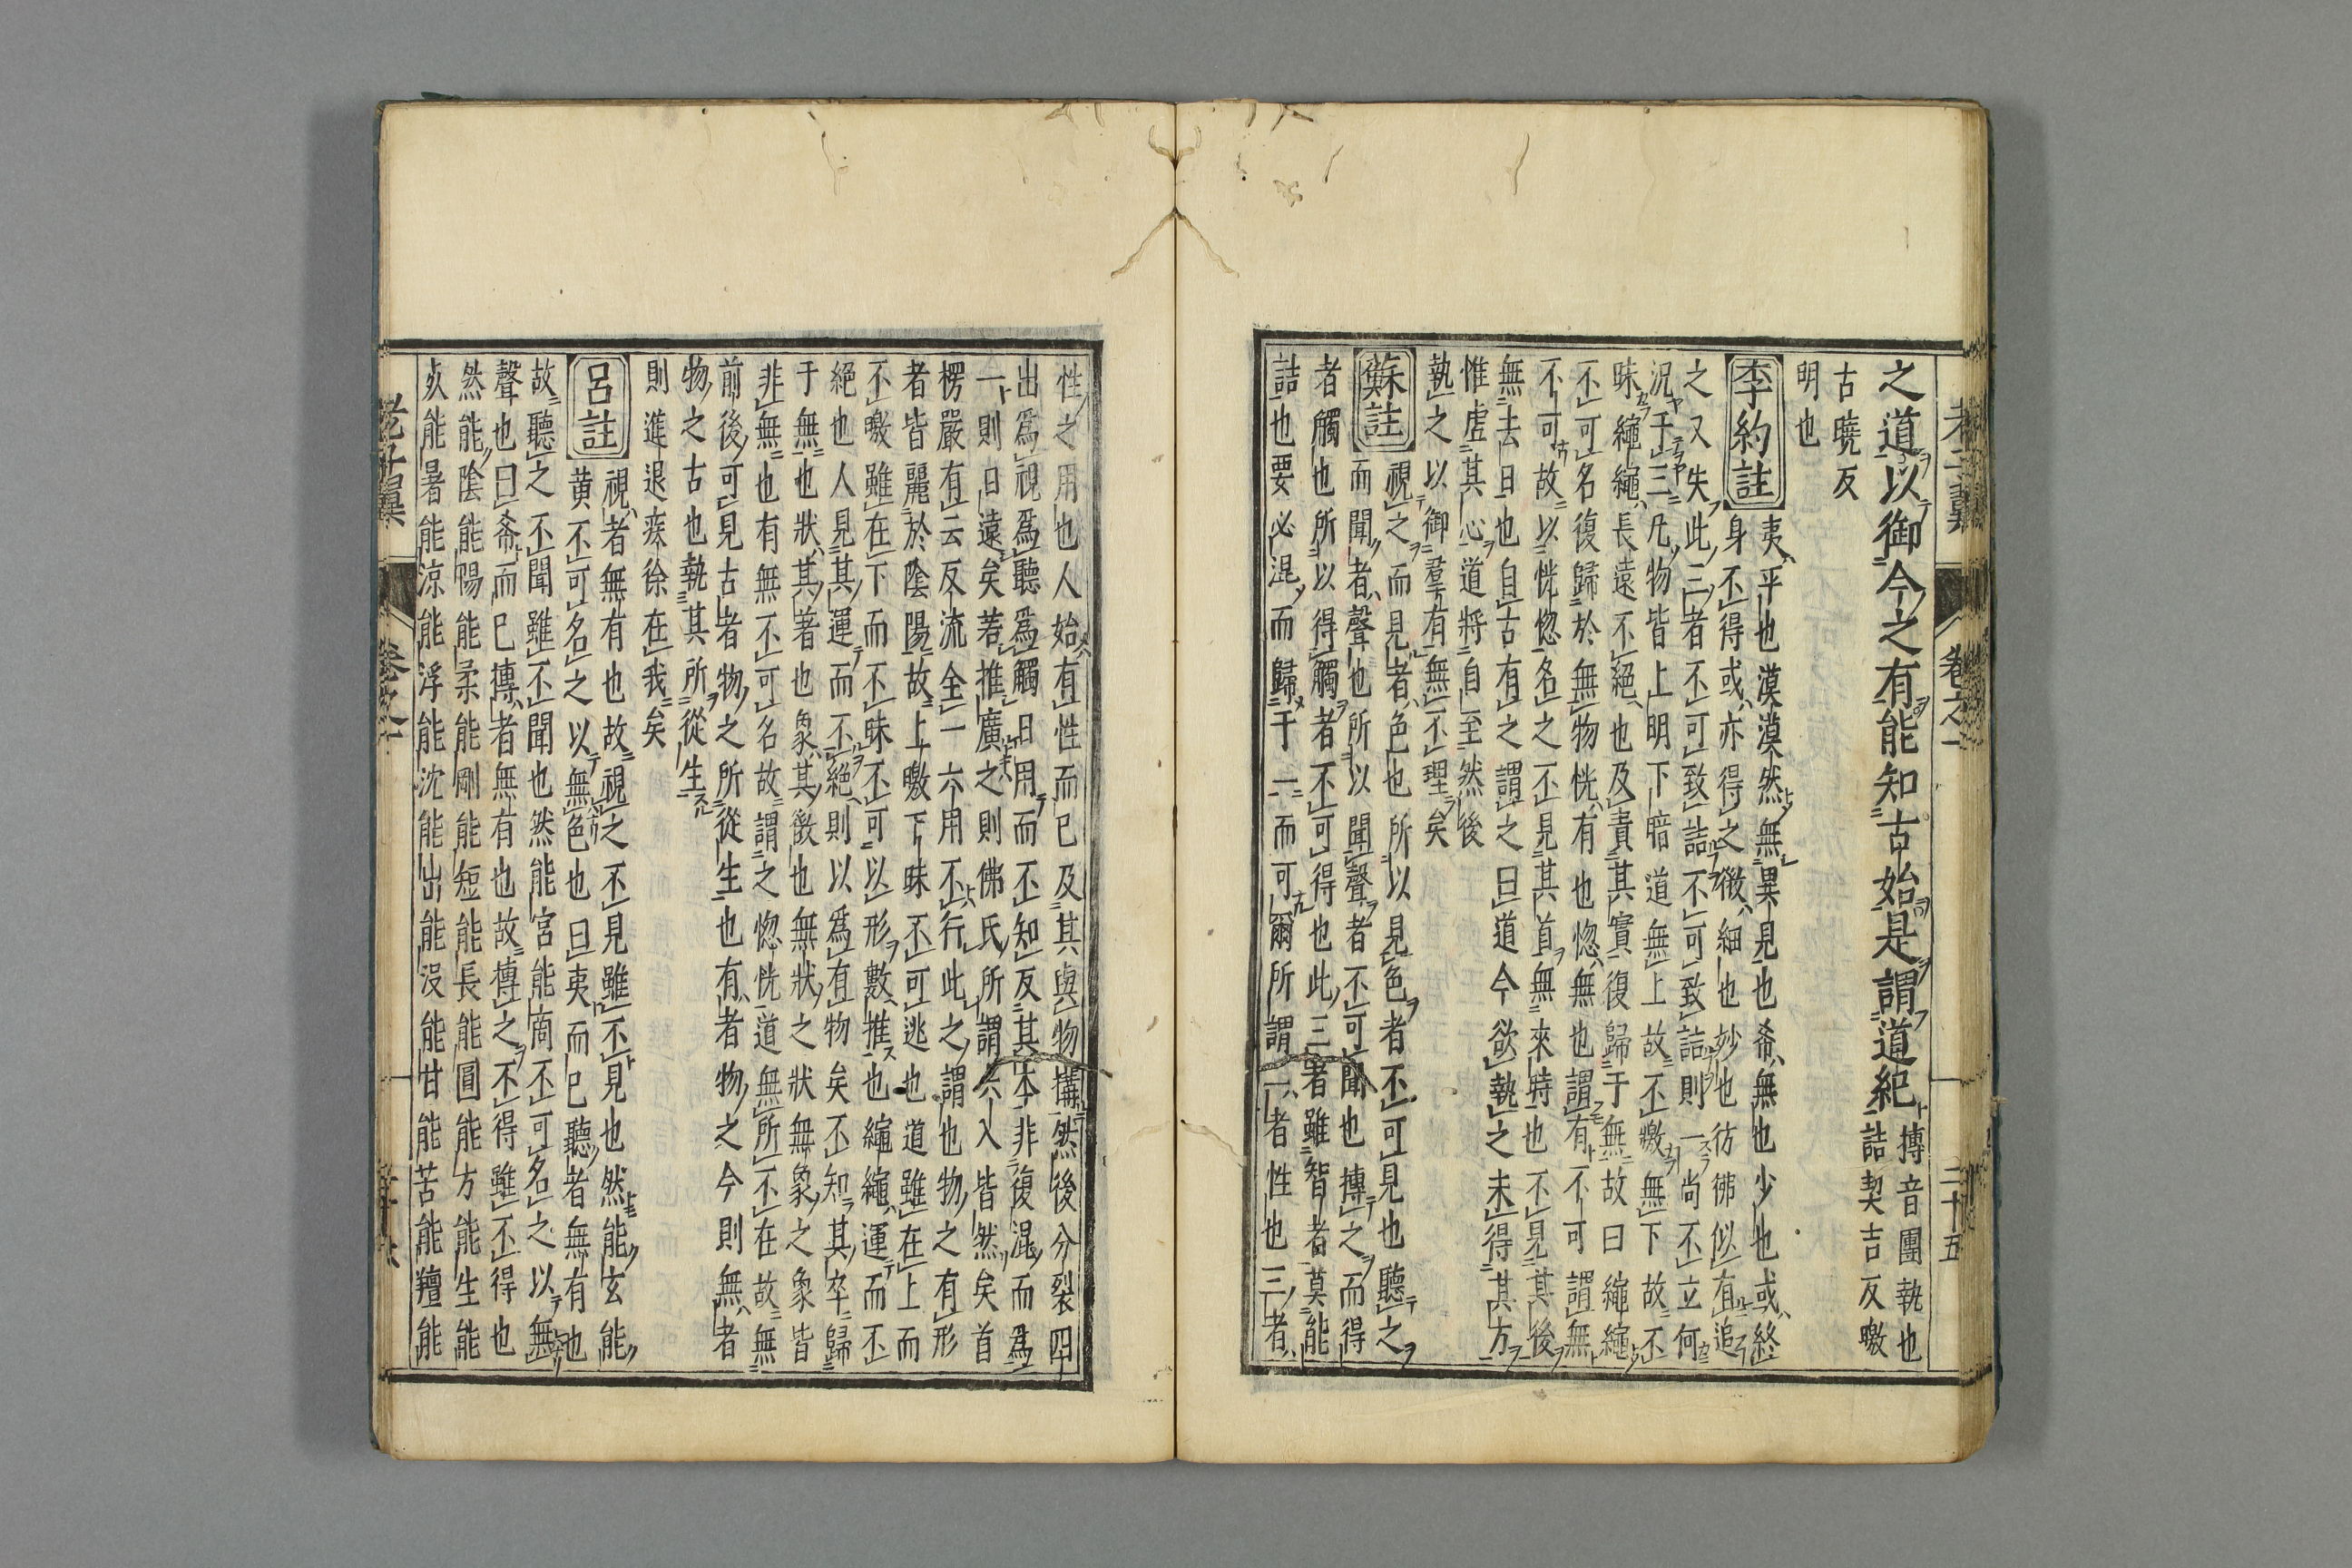 老子翼 卷之一 二十五
之道以御今之有能知古始是謂道紀搏音團執也
詰契吉反皦
古曉反
明也
李約註
夷平也漠漠然無異見也希無也少也或終
身不得或亦得之微細也妙也彷彿似有追
之又失此三者不可致詰不可致詰則一尚不立何
況于三凡物皆上明下暗道無上故不皦無下故不
昧繩繩長遠不絕也及責其實復歸于無故曰繩繩
不可名復歸於無物恍有也惚無也謂有不可謂無
不可故以恍惚名之不見其首無來時也不見其後
無去日也自古有之謂之曰道今欲執之未得其方
惟虛其心道將自至然後
執之以御羣有無不理矣
蘇註
視之而見者色也所以見色者不可見也聽之
而聞者聲也所以聞聲者不可聞也搏之而得
者觸也所以得觸者不可得也此三者雖智者莫能
詰也要必混而歸于一而可爾所謂一者性也三者
性之用也人始有性而已及其與物搆然後分裂四
出爲視爲聽爲觸日用而不知反其本非復混而爲
一則日遠矣若推廣之則佛氏所謂六入皆然矣首
楞嚴有云反流全一六用不行此之謂也物之有形
者皆麗於陰陽故上皦下昧不可逃也道雖在上而
不皦雖在下而不昧不可以形數推也繩繩運而不
絕也人見其運而不絕則以爲有物矣不知其卒歸
于無也狀其著也象其微也無狀之狀無象之象皆
非無也有無不可名故謂之惚恍道無所不在故無
前後可見古者物之所從生也有者物之今則無者
物之古也執其所從生
則進退疾徐在我矣
呂註
視者無有也故視之不見雖不見也然能玄能
黃不可名之以無色也曰夷而已聽者無有也
故聽之不聞雖不聞也然能宮能商不可名之以無
聲也曰希而已搏者無有也故搏之不得雖不得也
然能陰能陽能柔能剛能短能長能圓能方能生能
能暑能涼能浮能沈能出能沒能甘能苦能羶能
老子翼 卷之一